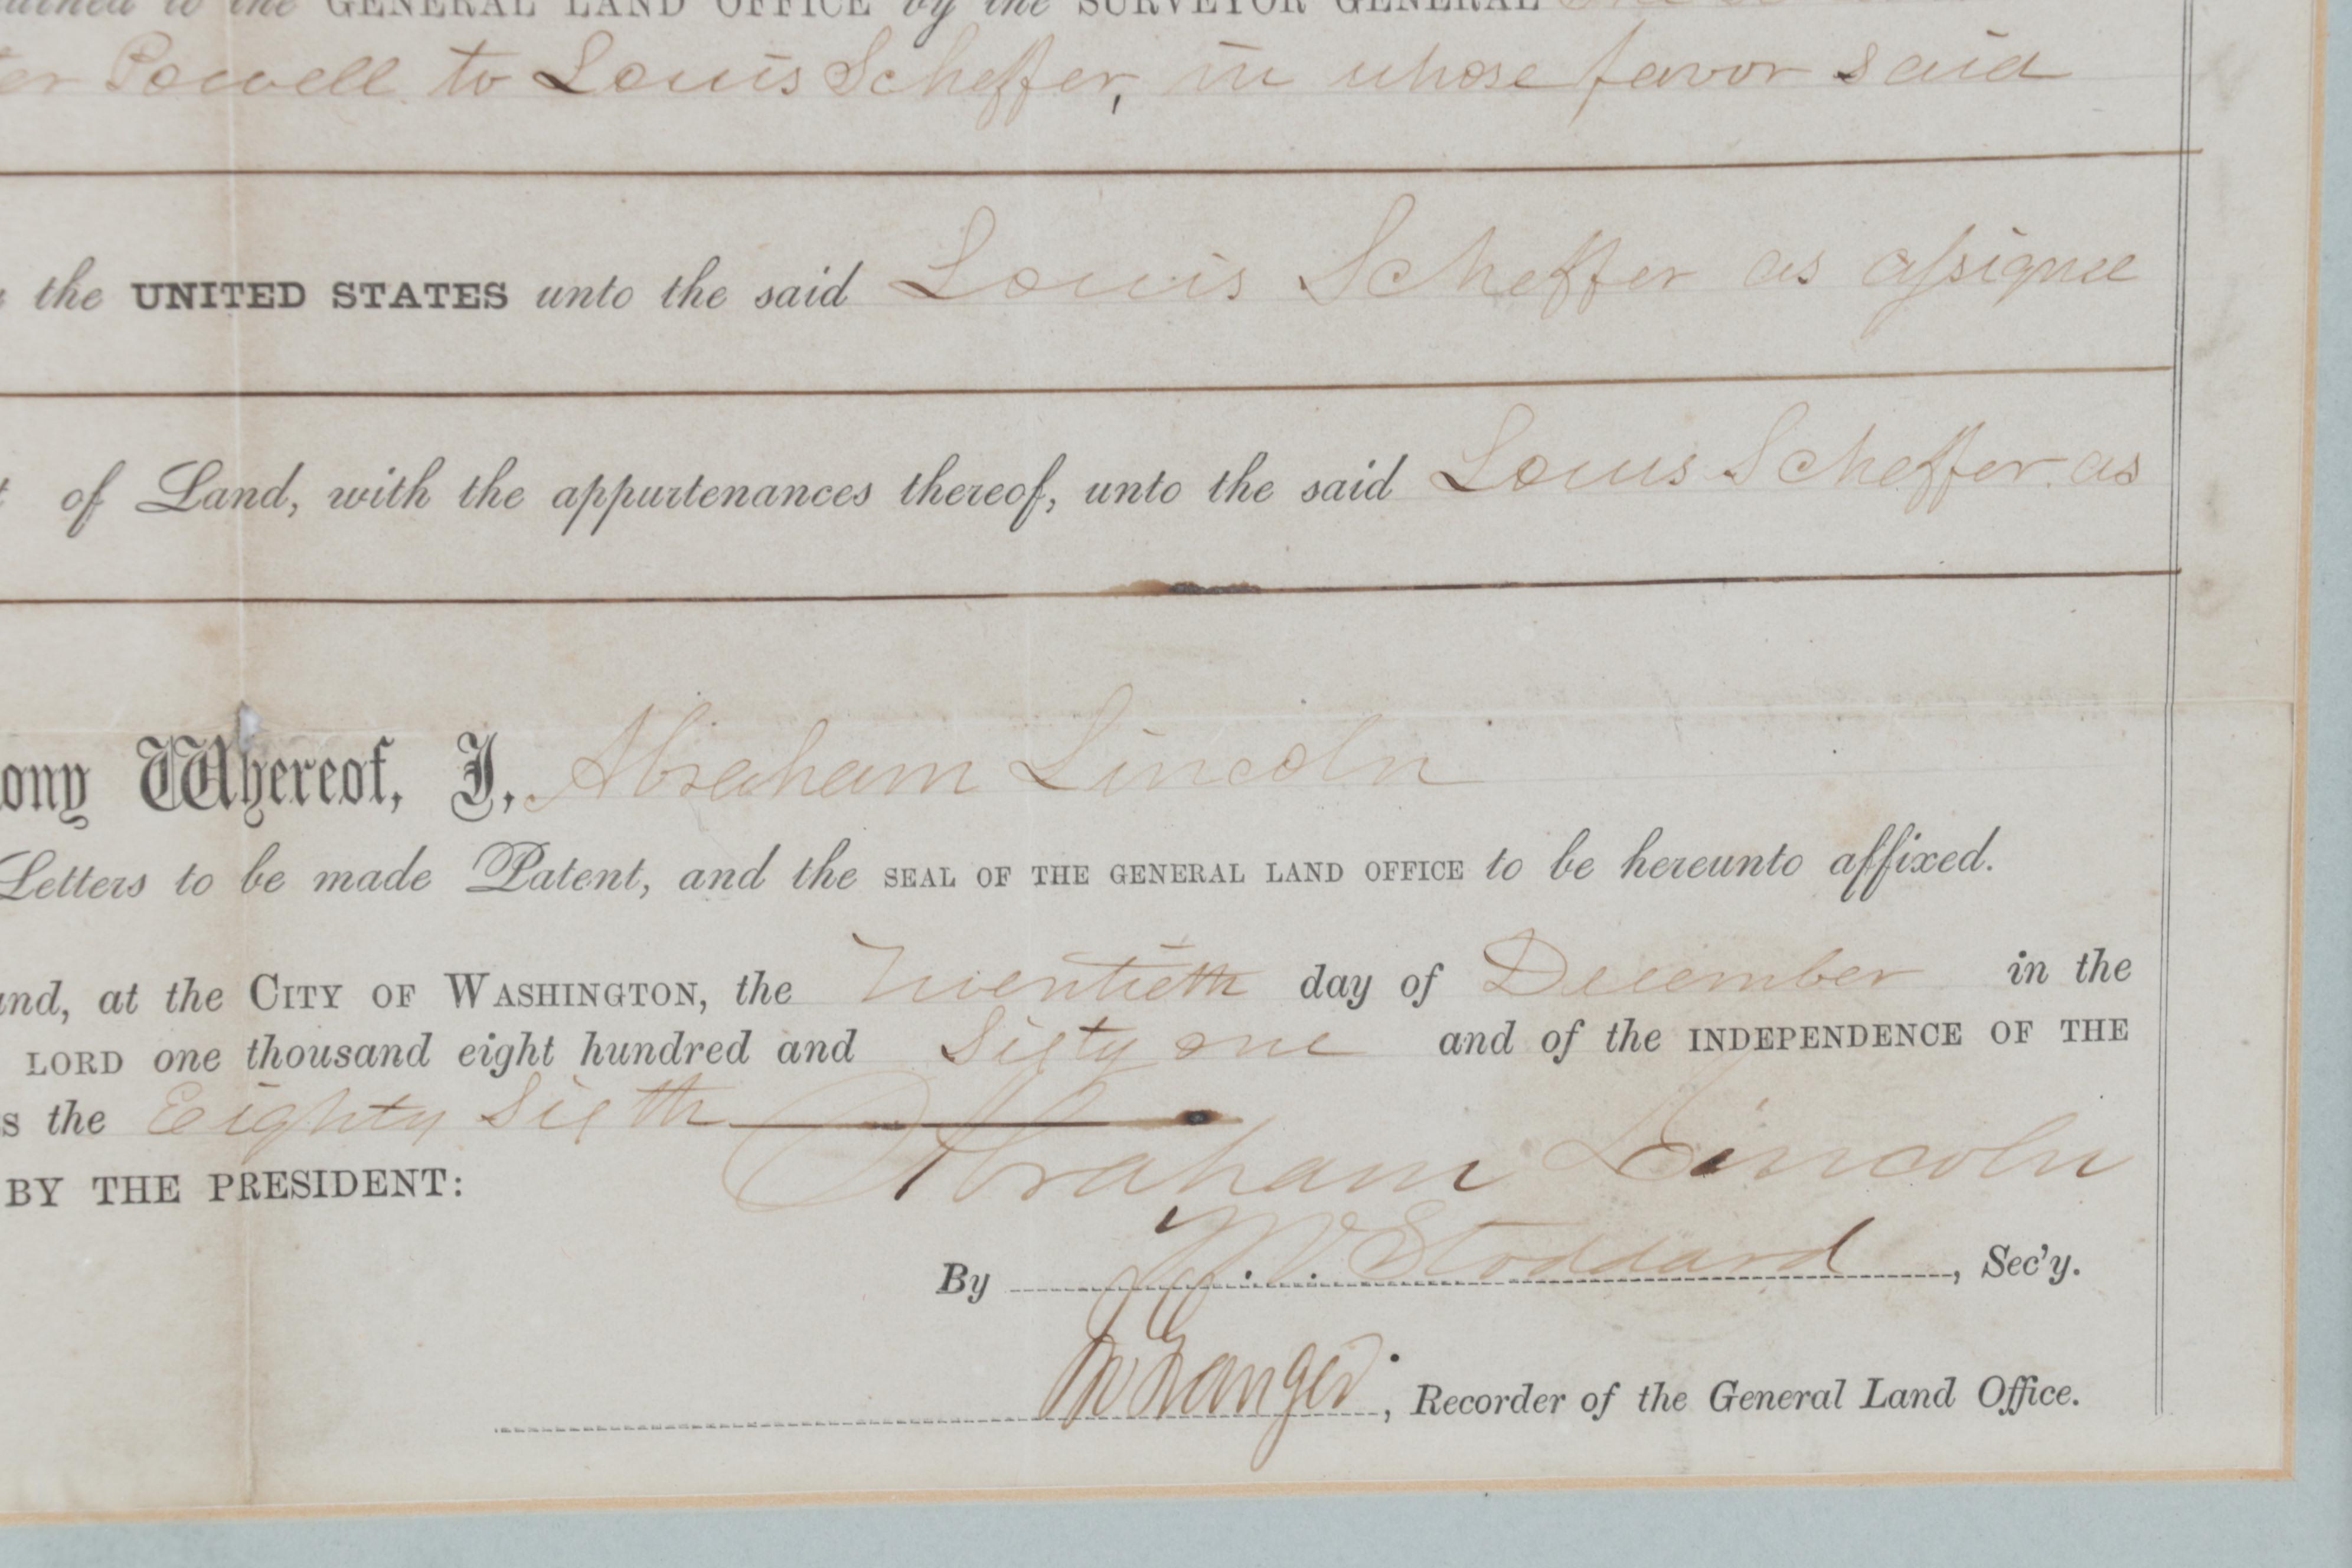 to the GENERAL LAND OFFICE by the SURVEYOR GENERAL
Powell to Louis Scheffer, in whose favor said
the UNITED STATES unto the said Louis Scheffer as assignee
of Land, with the appurtenances thereof, unto the said Louis Scheffer as
ony Whereof, I, Abraham Lincoln
Letters to be made Patent, and the SEAL OF THE GENERAL LAND OFFICE to be hereunto affixed.
and, at the CITY OF WASHINGTON, the Twentieth day of December in the
LORD one thousand eight hundred and Sixty one and of the INDEPENDENCE OF THE
s the Eighty Sixth
BY THE PRESIDENT: Abraham Lincoln
By W. Stoddard, Sec'y.
Granger, Recorder of the General Land Office.